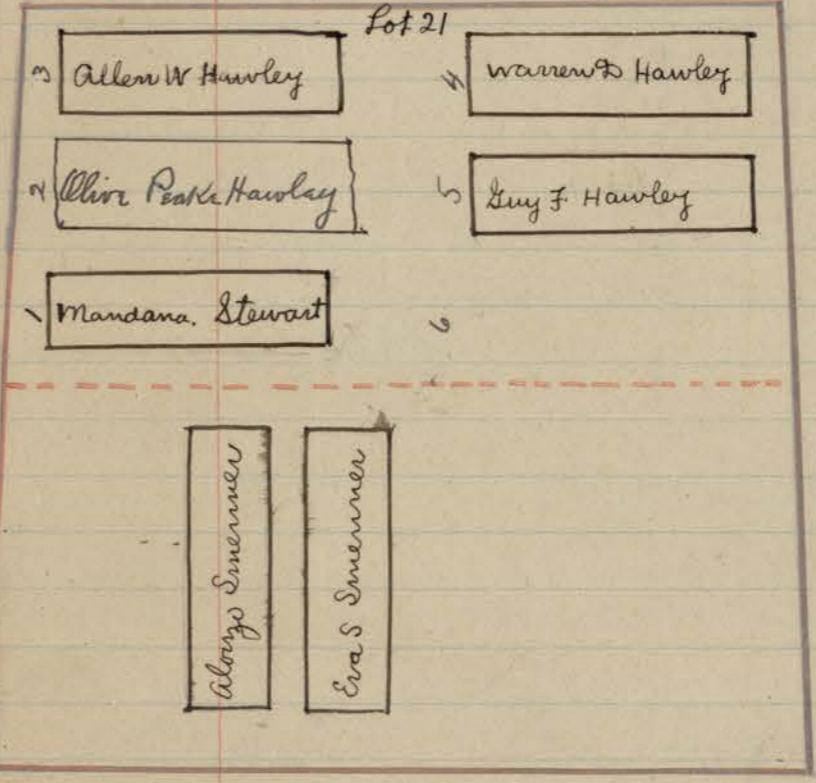 Lot 21
3 Allen W Hawley
4 Warren D Hawley
2 Olive Peake Hawley
5 Guy F. Hawley
1 Mandana. Stewart
6
Alonzo Smenner
Eva S Smenner